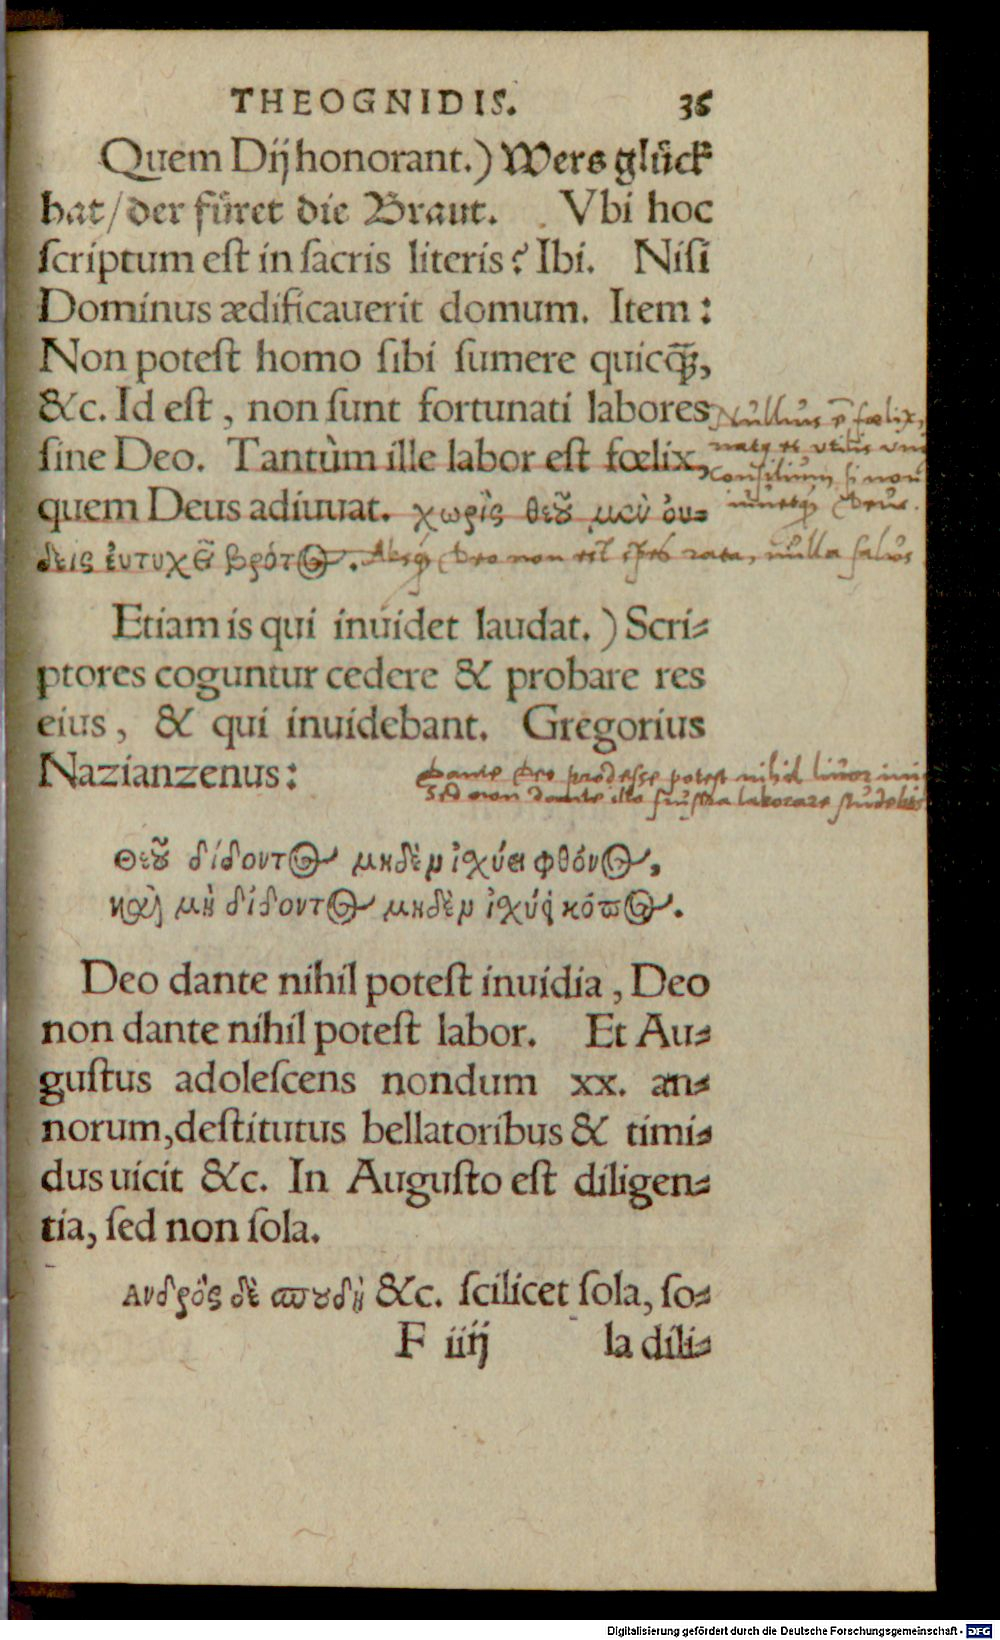 THEOGNIDIS. 36
Quem Dij honorant.) Wers glück
hat/der füret die Braut. Vbi hoc
scriptum est in sacris literis? Ibi. Nisi
Dominus ædificauerit domum. Item:
Non potest homo sibi sumere quicq̃,
&c. Id est, non sunt fortunati labores
sine Deo. Tantùm ille labor est fœlix,
quem Deus adiuuat. χωρὶς θεοῦ μὲν οὐ-
δεὶς ἐυτυχεῖ βρότος.
Nullius ē fœlix,
consilium si non
Deus.
Absq; Deo non est spes rata, nulla salus
Etiam is qui inuidet laudat.) Scri-
ptores coguntur cedere & probare res
eius, & qui inuidebant. Gregorius
Nazianzenus:
Dante Deo prodesse potest nihil liuor
Sed non dante illo frustra laborare
Θεοῦ δίδοντος μηδὲν ἰχύει φθόνος,
καὶ μὴ δίδοντος μηδὲν ἰχύει κόπος.
Deo dante nihil potest inuidia, Deo
non dante nihil potest labor. Et Au-
gustus adolescens nondum xx. an-
norum, destitutus bellatoribus & timi-
dus uicit &c. In Augusto est diligen-
tia, sed non sola.
Ανδρὸς δὲ σπουδὴ &c. scilicet sola, so-
F iiij la dili-
Digitalisierung gefördert durch die Deutsche Forschungsgemeinschaft - DFG